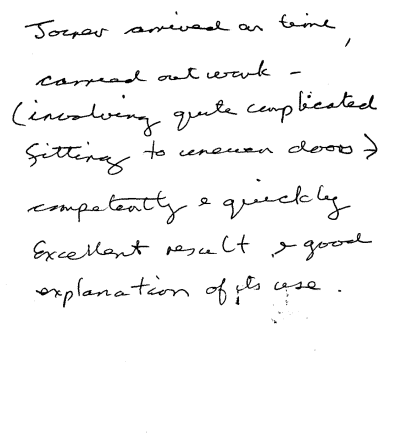 arrived on time,
carried out work -
(involving quite complicated
fitting to uneven doors)
competently & quickly
Excellent result & good
explanation of its use.